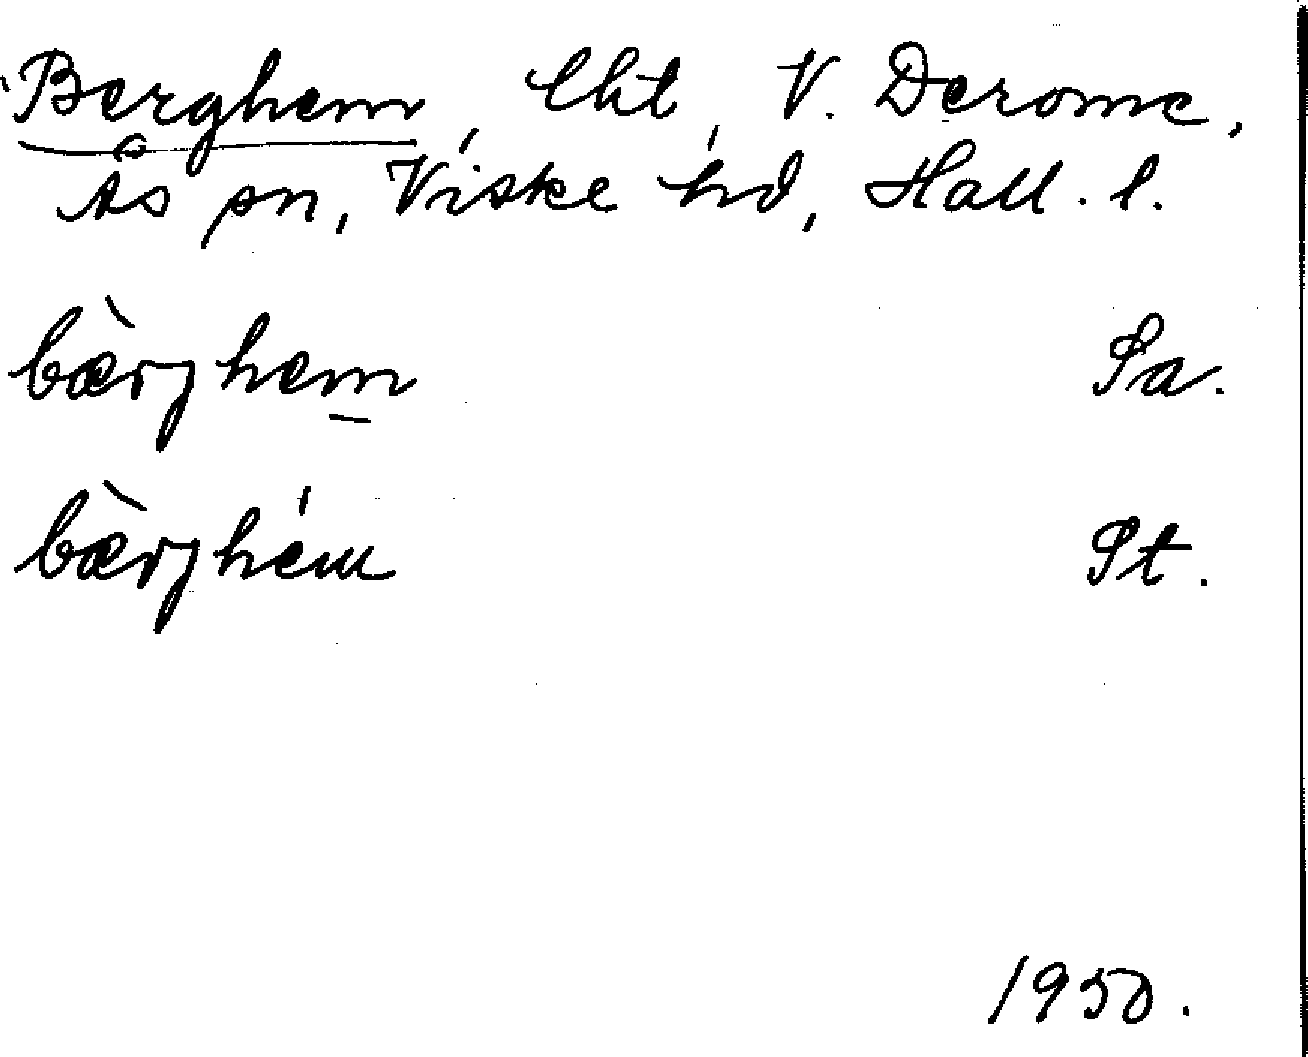 Berghem, lht, V. Derome,
Ås sn, Viske hd, Hall. l.
bæ̀rjhem̱ Sa.
bæ̀rjhém St.
1950.